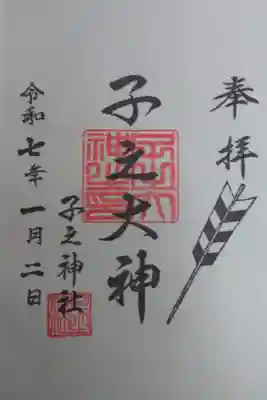 奉拝
子之大神
子之神社
令和七年一月二日